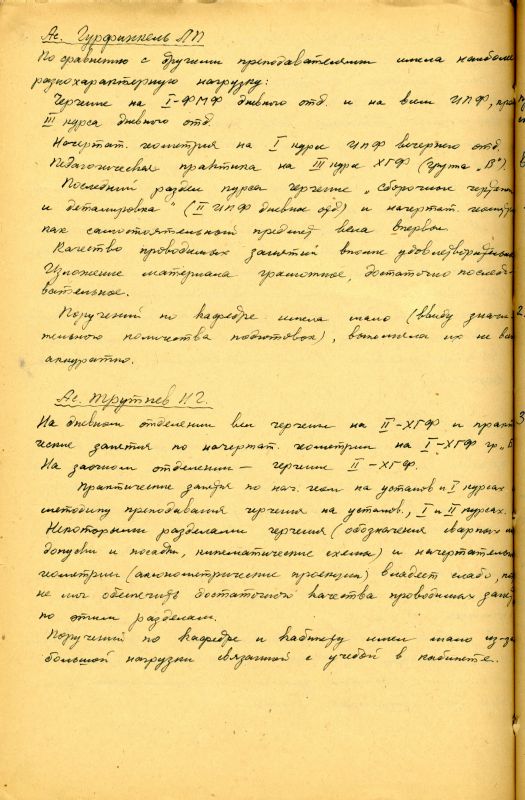 Ас. Гурфинкель ЛП
По сравнению с другими преподавателями имела наиболее
разнохарактерную нагрузку:
Черчение на I-ФМФ дневного отд. и на всем ИПФ, кроме
III курса дневного отд.
Начертат. геометрия на I курсе ИПФ вечернего отд.
Педагогическая практика на III курсе ХГФ (группа „В").
Последний раздел курса черчение „Сборочные чертежи
и деталировка" (II ИПФ дневное отд) и начертат. геометр
как самостоятельный предмет вела впервые.
Качество проводимых занятий вполне удовлетворительно
Изложение материала грамотное, достаточно последо-
вательное.
Поручений по кафедре имела мало (ввиду значи-
тельного количества подготовок), выполняла их не
аккуратно.
Ас. Трутнев Н.Г.
На дневном отделении вел черчение на II-ХГФ и практ
ческие занятия по начертат. геометрии на I-ХГФ гр.
На заочном отделении — черчение II-ХГФ.
Практические занятия по нач. геом на установ и I курсах
методику преподавания черчения на установ., I и II курсах.
Некоторыми разделами черчения (обозначения сварных
допуски и посадки, кинематические схемы) и начертательн
геометрии (аксонометрические проекции) владеет слабо,
не мог обеспечить достаточного качества проводимых занят
по этим разделам.
Поручений по кафедре и кабинету имел мало из-за
большой нагрузки связанной с учебой в кабинете.
2.
3